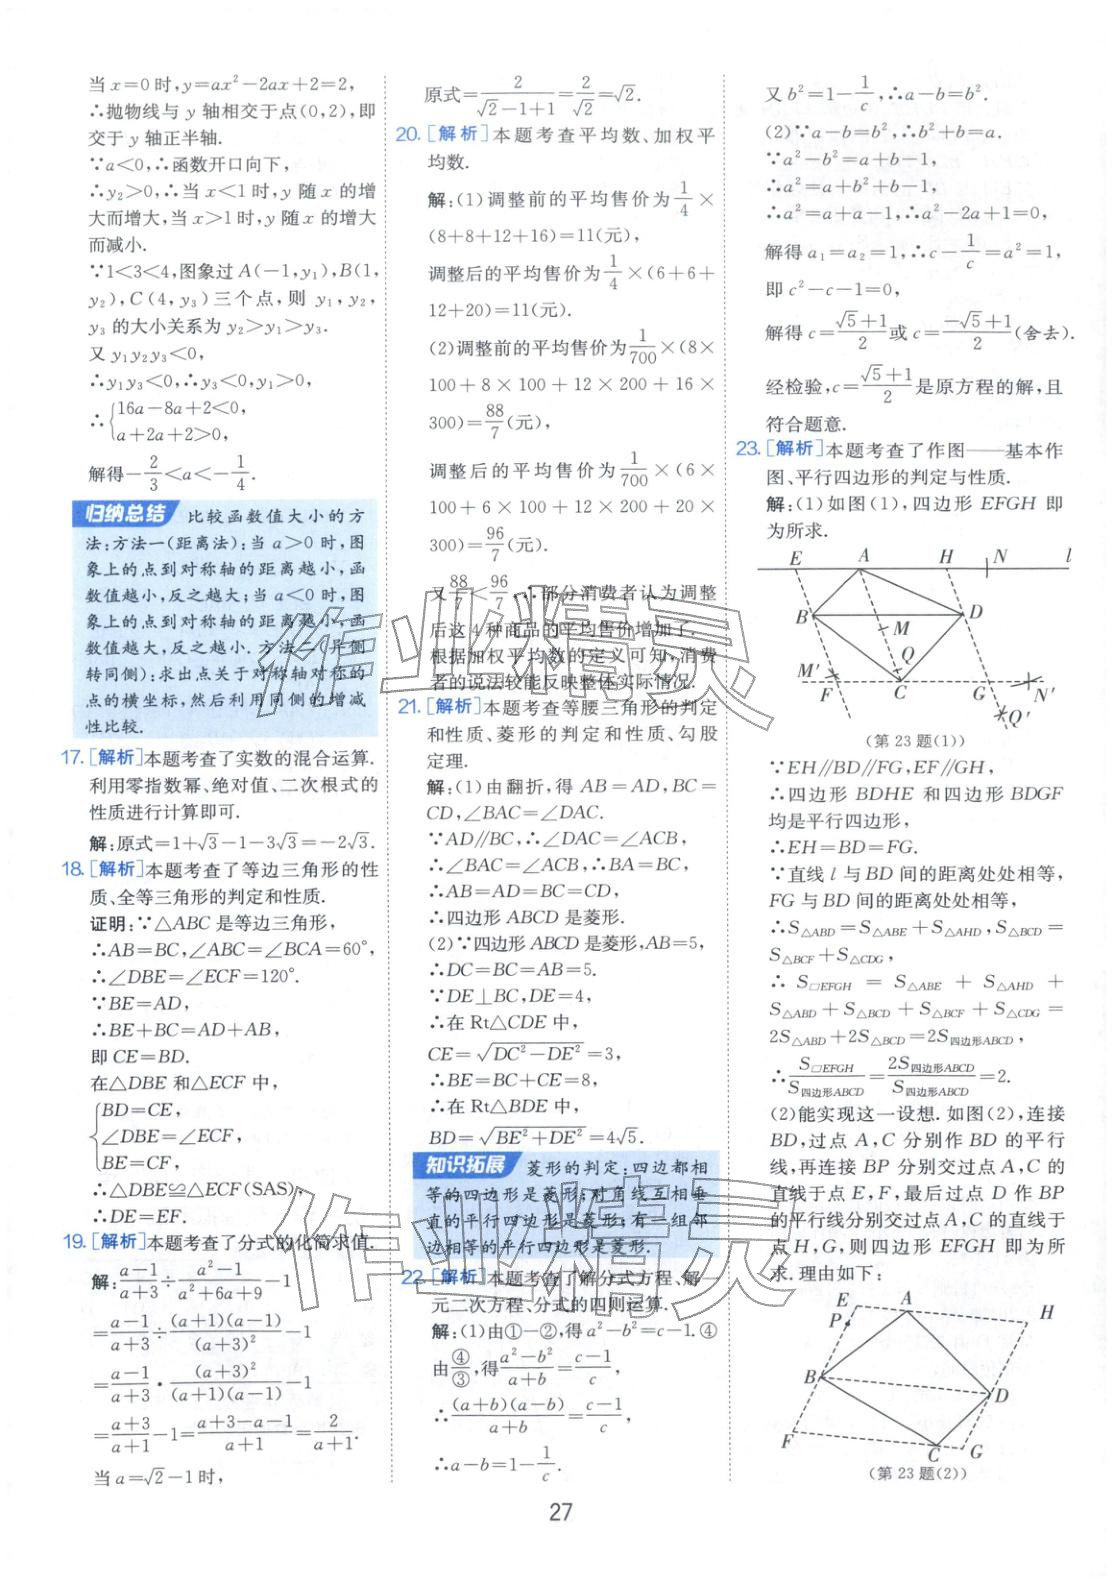 当x=0时,y=ax²-2ax+2=2,
∴抛物线与y轴相交于点(0,2),即
交于y轴正半轴.
∵a<0,∴函数开口向下,
∴y₂>0,∴当x<1时,y随x的增
大而增大,当x>1时,y随x的增大
而减小.
∵1<3<4,图象过A(-1,y₁),B(1,
y₂),C(4,y₃)三个点,则y₁,y₂,
y₃的大小关系为y₂>y₁>y₃.
又y₁y₂y₃<0,
∴y₁y₃<0,∴y₃<0,y₁>0,
∴{16a-8a+2<0,
a+2a+2>0,
解得-2/3<a<-1/4.
归纳总结 比较函数值大小的方
法:方法一(距离法):当a>0时,图
象上的点到对称轴的距离越小,函
数值越小,反之越大;当a<0时,图
象上的点到对称轴的距离越小,函
数值越大,反之越小.方法二(异侧
转同侧):求出点关于对称轴对称的
点的横坐标,然后利用同侧的增减
性比较.
17.[解析]本题考查了实数的混合运算.
利用零指数幂、绝对值、二次根式的
性质进行计算即可.
解:原式=1+√3-1-3√3=-2√3.
18.[解析]本题考查了等边三角形的性
质、全等三角形的判定和性质.
证明:∵△ABC是等边三角形,
∴AB=BC,∠ABC=∠BCA=60°,
∴∠DBE=∠ECF=120°.
∵BE=AD,
∴BE+BC=AD+AB,
即CE=BD.
在△DBE和△ECF中,
{BD=CE,
∠DBE=∠ECF,
BE=CF,
∴△DBE≌△ECF(SAS),
∴DE=EF.
19.[解析]本题考查了分式的化简求值.
解:(a-1)/(a+3)÷(a²-1)/(a²+6a+9)-1
=(a-1)/(a+3)÷((a+1)(a-1))/(a+3)²-1
=(a-1)/(a+3)·(a+3)²/((a+1)(a-1))-1
=(a+3)/(a+1)-1=(a+3-a-1)/(a+1)=2/(a+1).
当a=√2-1时,
原式=2/(√2-1+1)=2/√2=√2.
20.[解析]本题考查平均数、加权平
均数.
解:(1)调整前的平均售价为1/4×
(8+8+12+16)=11(元),
调整后的平均售价为1/4×(6+6+
12+20)=11(元).
(2)调整前的平均售价为1/700×(8×
100+8×100+12×200+16×
300)=88/7(元),
调整后的平均售价为1/700×(6×
100+6×100+12×200+20×
300)=96/7(元).
又88/7<96/7,∴部分消费者认为调整
后这4种商品的平均售价增加了.
根据加权平均数的定义可知,消费
者的说法较能反映整体实际情况.
21.[解析]本题考查等腰三角形的判定
和性质、菱形的判定和性质、勾股
定理.
解:(1)由翻折,得AB=AD,BC=
CD,∠BAC=∠DAC.
∵AD∥BC,∴∠DAC=∠ACB,
∴∠BAC=∠ACB,∴BA=BC,
∴AB=AD=BC=CD,
∴四边形ABCD是菱形.
(2)∵四边形ABCD是菱形,AB=5,
∴DC=BC=AB=5.
∵DE⊥BC,DE=4,
∴在Rt△CDE中,
CE=√(DC²-DE²)=3,
∴BE=BC+CE=8,
∴在Rt△BDE中,
BD=√(BE²+DE²)=4√5.
知识拓展 菱形的判定:四边都相
等的四边形是菱形;对角线互相垂
直的平行四边形是菱形;有一组邻
边相等的平行四边形是菱形.
22.[解析]本题考查了解分式方程、解一
元二次方程、分式的四则运算.
解:(1)由①-②,得a²-b²=c-1.④
由④/③,得(a²-b²)/(a+b)=(c-1)/c,
∴((a+b)(a-b))/(a+b)=(c-1)/c,
∴a-b=1-1/c.
又b²=1-1/c,∴a-b=b².
(2)∵a-b=b²,∴b²+b=a.
∵a²-b²=a+b-1,
∴a²=a+b²+b-1,
∴a²=a+a-1,∴a²-2a+1=0,
解得a₁=a₂=1,∴c-1/c=a²=1,
即c²-c-1=0,
解得c=(√5+1)/2或c=(-√5+1)/2(舍去).
经检验,c=(√5+1)/2是原方程的解,且
符合题意.
23.[解析]本题考查了作图——基本作
图、平行四边形的判定与性质.
解:(1)如图(1),四边形EFGH即
为所求.
E A H N l
B D
M
Q
M′
F C G N′
Q′
(第23题(1))
∵EH∥BD∥FG,EF∥GH,
∴四边形BDHE和四边形BDGF
均是平行四边形,
∴EH=BD=FG.
∵直线l与BD间的距离处处相等,
FG与BD间的距离处处相等,
∴S△ABD=S△ABE+S△AHD,S△BCD=
S△BCF+S△CDG,
∴S□EFGH=S△ABE+S△AHD+
S△ABD+S△BCD+S△BCF+S△CDG=
2S△ABD+2S△BCD=2S四边形ABCD,
∴S□EFGH/S四边形ABCD=2S四边形ABCD/S四边形ABCD=2.
(2)能实现这一设想.如图(2),连接
BD,过点A,C分别作BD的平行
线,再连接BP分别交过点A,C的
直线于点E,F,最后过点D作BP
的平行线分别交过点A,C的直线于
点H,G,则四边形EFGH即为所
求.理由如下:
E A
P H
B D
F
C G
(第23题(2))
27
作业精灵
作业精灵